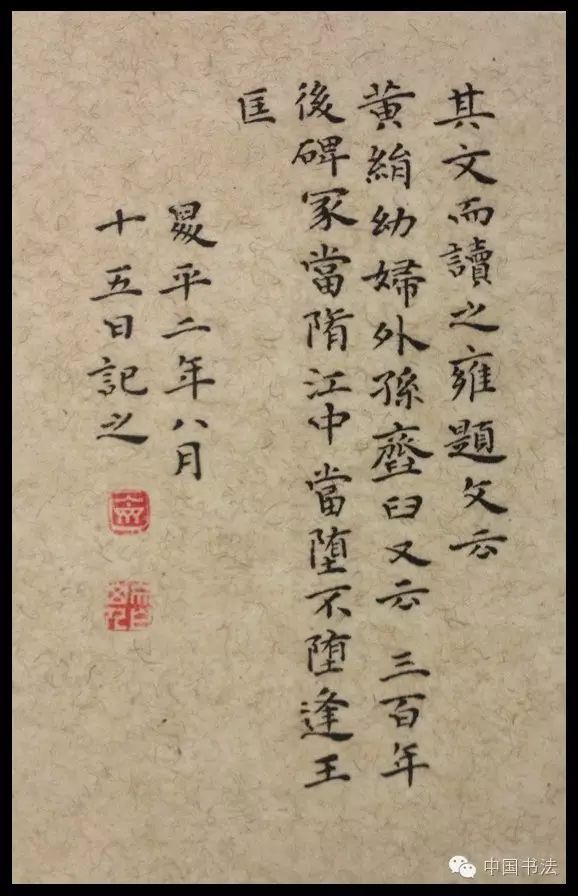 其文而讀之雍題文云
黄絹幼婦外孫齏臼又云 三百年
後碑冢當隋江中當堕不堕逢王
匡
昇平二年八月
十五日記之
中国书法